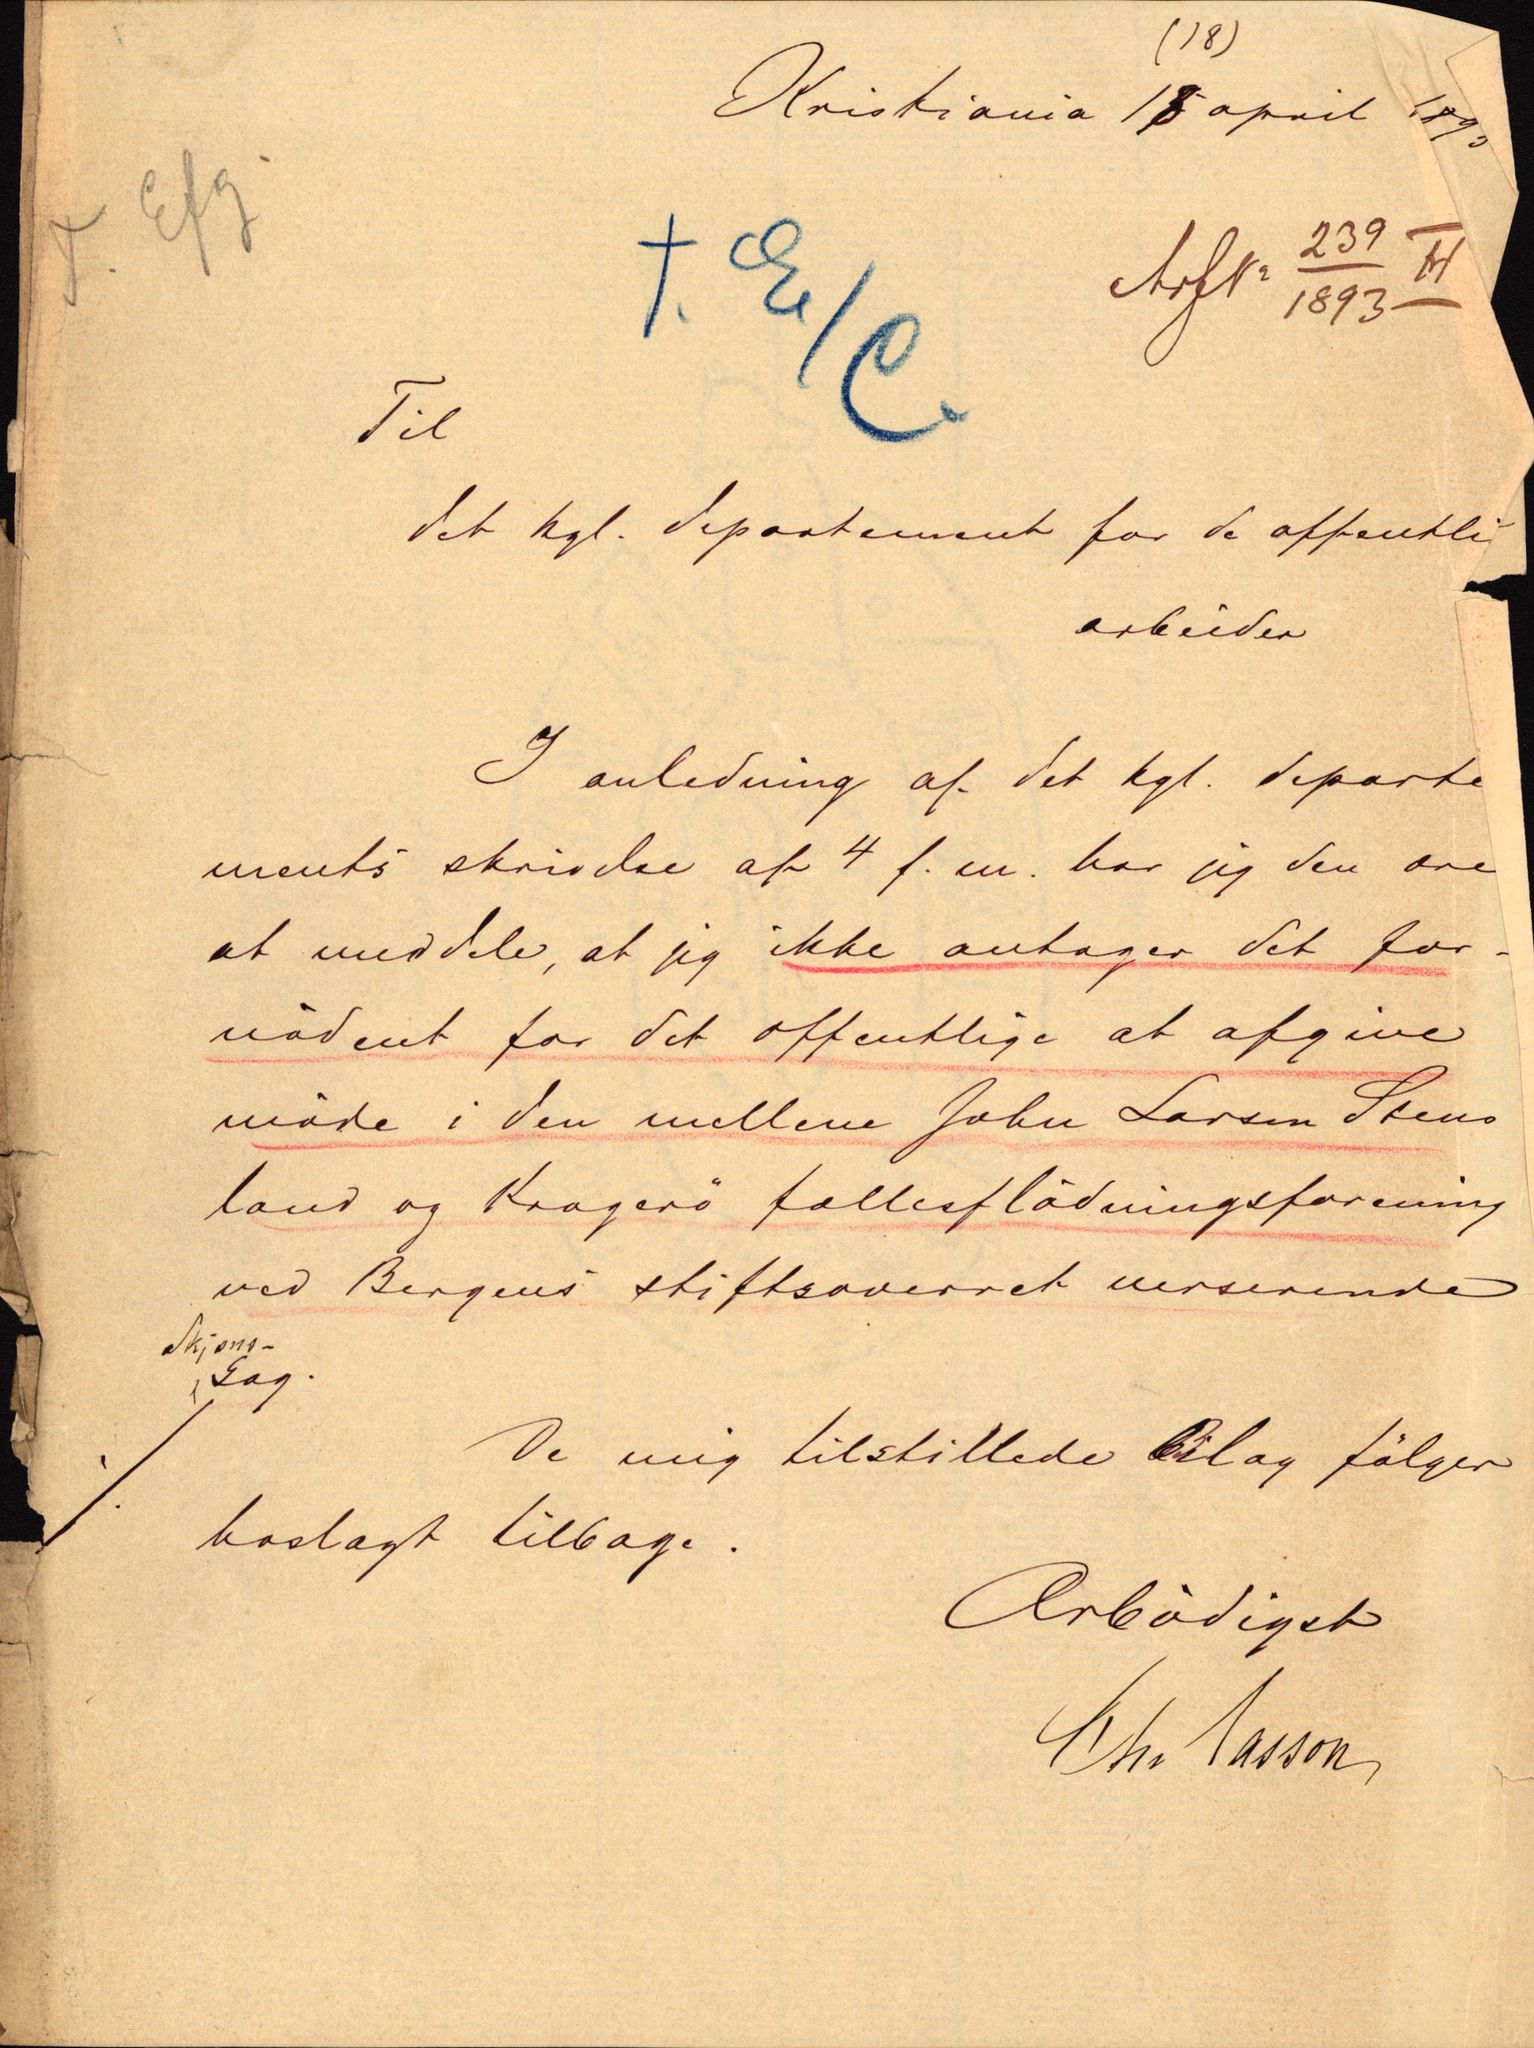 (18)
Kristiania 18 april 1893
T. Efg.
†. E/C.
Nr 239/1893 H
Til
det kgl. departement for de offentli
arbeider
I anledning af det kgl. departe
ments skrivelse af 4 f. m. har jeg den ære
at meddele, at jeg ikke antager det for-
nödent for det offentlige at afgive
möde i den mellem John Larsen Stens
land og Kragerö fællesflödningsforening
ved Bergens stiftsoverret verserende
skjöns-
Sag.
De mig tilstillede Bilag fölger
hoslagt tilbage.
Ærbödigst
Chr Sasson